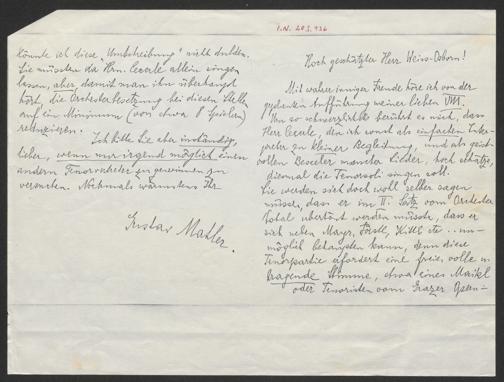 I.N. 205.926
Hoch geschätzter Herr Weis-Osborn!
Mit wahrer inniger Freude höre ich von der
geplanten Aufführung meiner lieben VIII.
Um so schmerzlicher berührt es mich, dass
Herr Cecile, den ich sonst als einfachen Inter-
preten zu kleiner Begleitung, und als geist-
vollen Bewerter mancher Lieder, hoch schätze,
diesmal die Tenorsoli singen soll.
Sie werden sich doch wohl selber sagen
müssen, dass er im II. Satz vom Orchester
total übertönt werden müsste, dass er
sich neben Mayr, Förstl, Kittl etc .. un-
möglich behaupten kann, denn diese
Tenorpartie erfordert eine freie, volle u.
tragende Stimme, etwa eines Maikl
oder Tenoristen vom Grazer Opern-
könnte ich diese "Umschreibung" nicht dulden.
Sie müssten da Hrn. Cecile allein singen
lassen, aber, damit man ihn überhaupt
hört, die Orchesterbesetzung bei diesen Stellen
auf ein Minimum (von etwa 8 Spielern)
reduzieren.
Ich bitte Sie aber inständig,
lieber, wenn nur irgend möglich einen
andern Tenorvertreter zu gewinnen zu
versuchen. Nochmals wärmstens Ihr
Gustav Mahler.